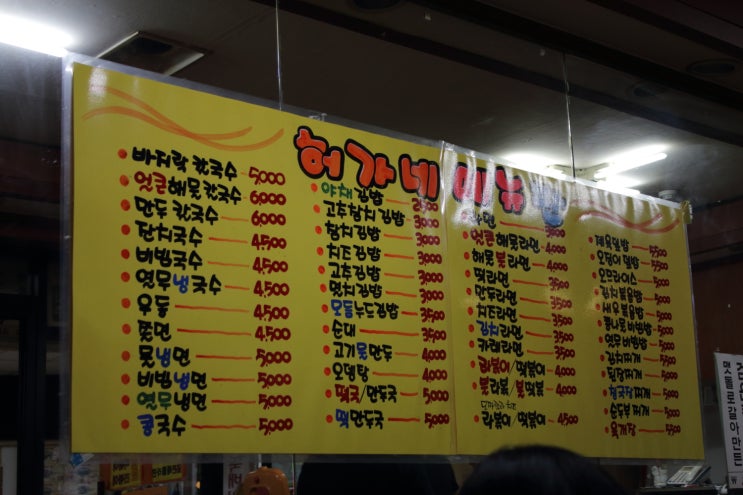 허가네 메뉴
바지락 칼국수 5,000
얼큰해물칼국수 6,000
만두 칼국수 6,000
잔치국수 4,500
비빔국수 4,500
열무냉국수 4,500
우동 4,500
쫄면 4,500
물냉면 5,000
비빔냉면 5,000
열무냉면 5,000
콩국수 5,000
야채김밥
고추참치김밥 3,000
참치김밥 3,000
치즈김밥 3,000
고추김밥 3,000
멸치김밥 3,000
모듬누드김밥 3,500
순대 3,500
고기물만두 4,000
오뎅탕 4,000
떡국/만두국 5,000
떡만두국 5,000
라면
얼큰해물라면 4,000
해물볶라면 4,000
떡라면 3,500
만두라면 3,500
치즈라면 3,500
김치라면 3,500
카레라면 3,500
라볶이/떡볶이 4,000
볶라볶/볶떡볶 4,000
라볶이/떡볶이 4,500
제육덮밥 5,500
오징어덮밥 5,500
오므라이스 5,000
김치볶음밥 5,000
새우볶음밥 5,000
콩나물비빔밥 5,000
열무비빔밥 5,000
김치찌개 5,000
된장찌개 5,000
청국장찌개 5,000
순두부찌개 5,000
육개장 5,500